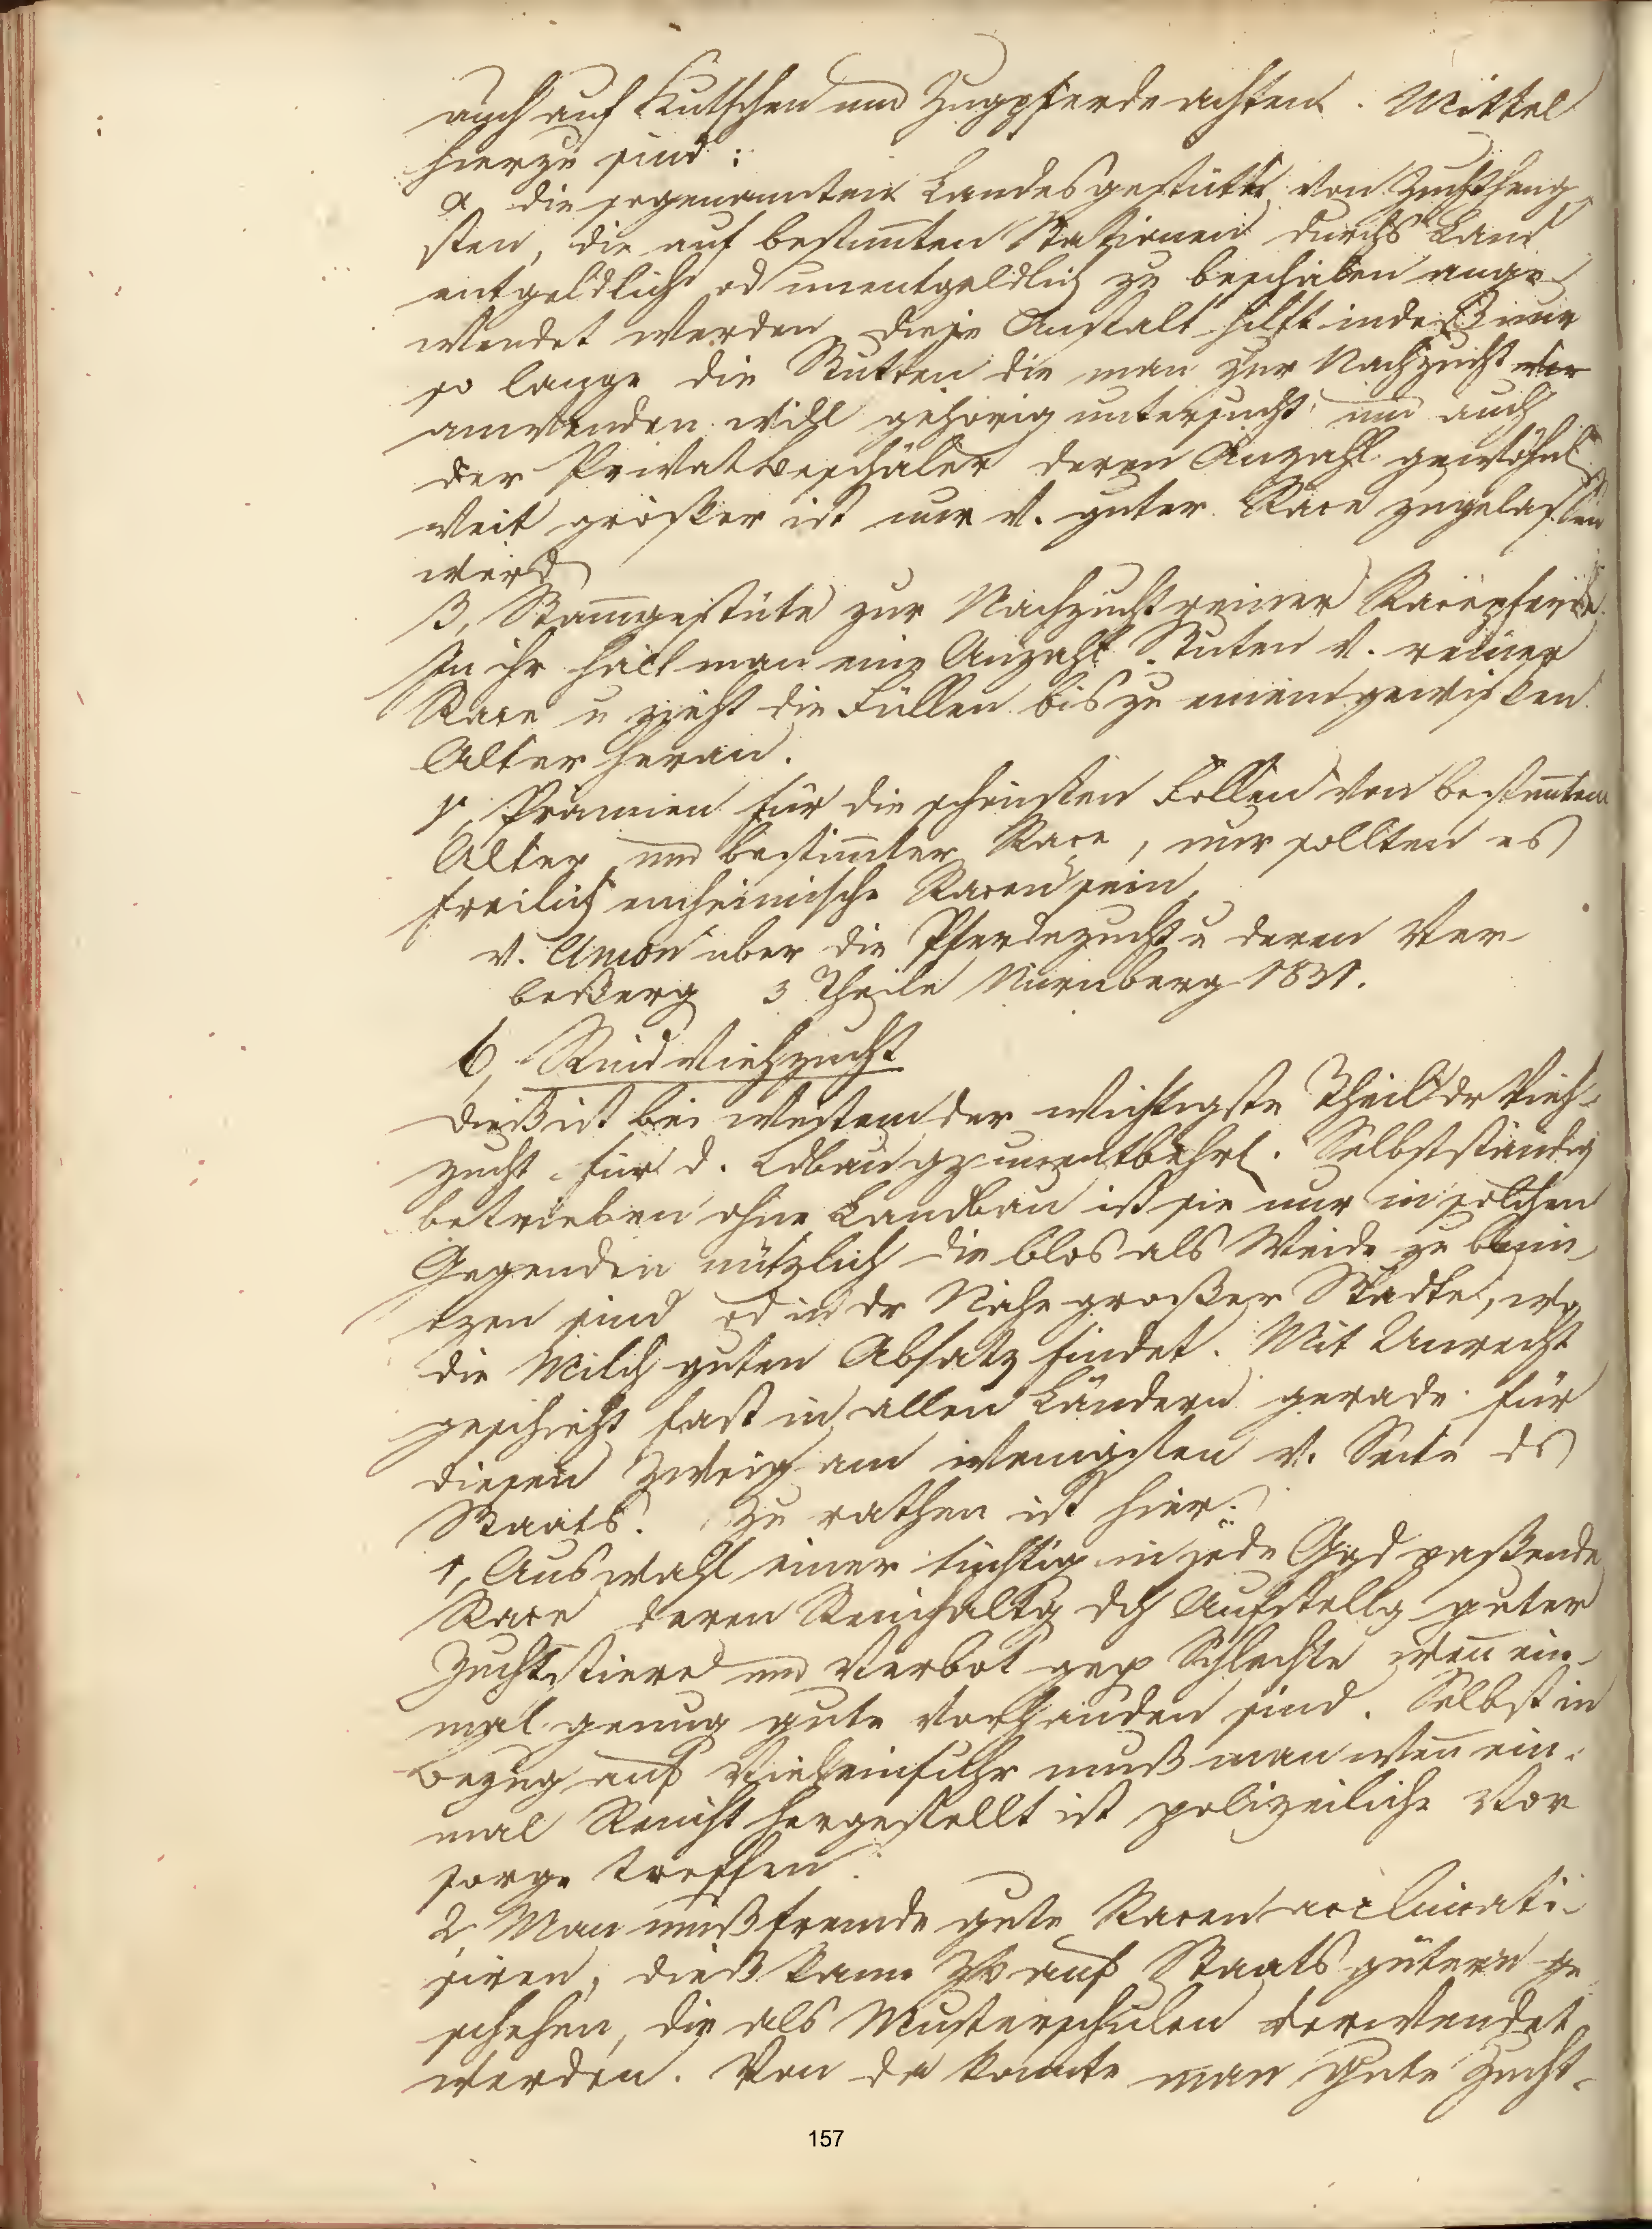 auch auf Kutschen und Zugpferde achten. Mittel
hierzu sind:
α, die sogenannten Landesgestütte von Zuchtheng
sten, die auf bestim̄ten Stazionen durchs Land
entgeldlich od unentgeldlich zu beschälen ange-
wendet werden, diese Anstalt hilft indeß nur
so lange die Stutten die man zur Nachzucht
anwenden will gehörig untersucht und auch
der Privatbeschäler deren Anzahl gewöhnl
weit größer ist nur v. guter Race zugelassen
wird
β, Stam̄gestüte zur Nachzucht reiner Racepferde.
In ihr hält man eine Anzahl Stuten v. reiner
Race u zieht die Füllen bis zu einem gewissen
Alter heran.
γ, Prämien für die schönsten Füllen von bestim̄tem
Alter und bestim̄ter Race, nur sollten es
freilich einheimische Racen sein.
v. über die Pferdezucht u deren Ver-
beßerg 3 Theile Nürnberg 1831.
b, Rindviehzucht
Dieß ist bei weitem der wichtigste Theil dr Vieh-
zucht für d. Ldbau gz unentbehrl. Selbstständig
betrieben ohne Landbau ist sie nur in solchen
Gegenden nützlich die blos als Weide zu benü-
tzen sind od in dr Nähe großer Städte, wo
die Milch guten Absatz findet. Mit Unrecht
geschieht fast in allen Ländern gerade für
diesen Zweig am wenigsten v. Seite ds
Staats. Zu rathen ist hier:
1, Auswahl einer tüchtig in jede Ggd paßende
Race deren Reinhaltg dch Aufstellg guter
Zuchtstiere und Verbot geg Schlechte wen̄ ein-
mal genug gute vorhanden sind. Selbst in
Bezug auf Vieheinfuhr muß man wen̄ ein-
mal hergestellt ist polizeiliche Vor
sorge treffen.
2 Man muß fremde gute Racen acclimati-
siren, dieß kann zB auf Staatsgütern ge
schehen, die als Musterschulen verwendet
werden. Von da könnte man gute Zucht-
157